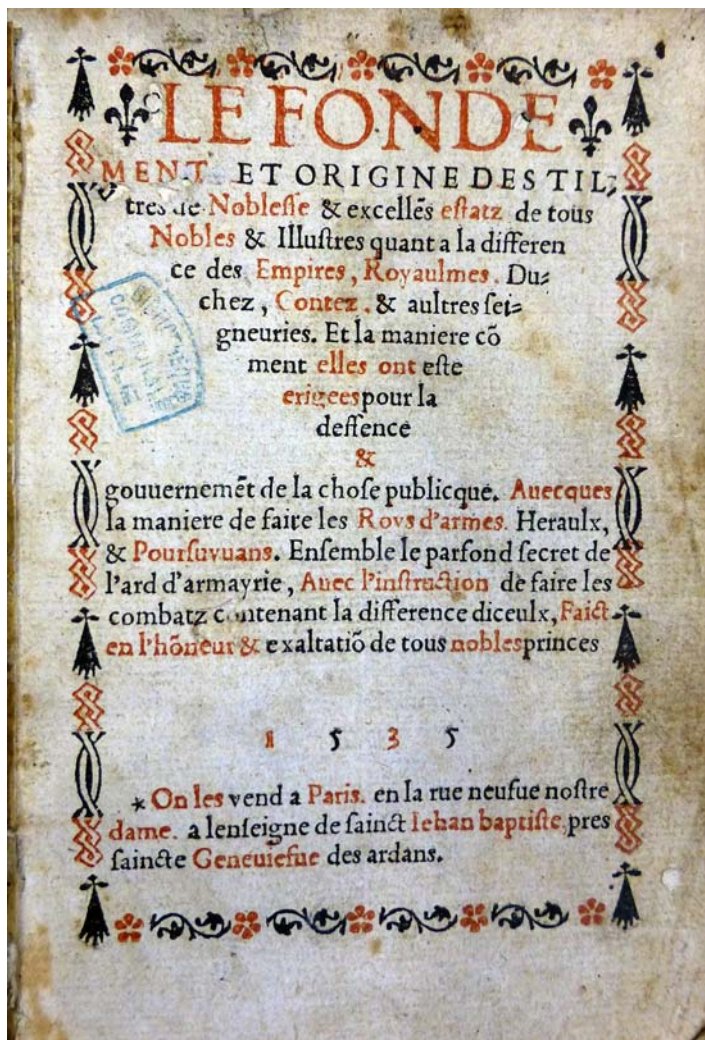 LE FONDE
MENT ET ORIGINE DES TIL⸗
tres de Noblesse & excellẽs estatz de tous
Nobles & Illustres quant a la differen
ce des Empires, Royaulmes. Du⸗
chez, Contez. & aultres sei⸗
gneuries. Et la maniere cõ
ment elles ont este
erigees pour la
deffence
&
gouuernemẽt de la chose publicque. Auecques
la maniere de faire les Roys d'armes. Heraulx,
& Poursuyuans. Ensemble le parfond secret de
l'ard d'armayrie, Auec l'instruction de faire les
combatz contenant la difference diceulx, Faict
en l'hõneur & exaltatiõ de tous nobles princes
1535
* On les vend a Paris. en la rue neufue nostre
dame. a lenseigne de sainct Iehan baptiste, pres
saincte Geneuiefue des ardans.